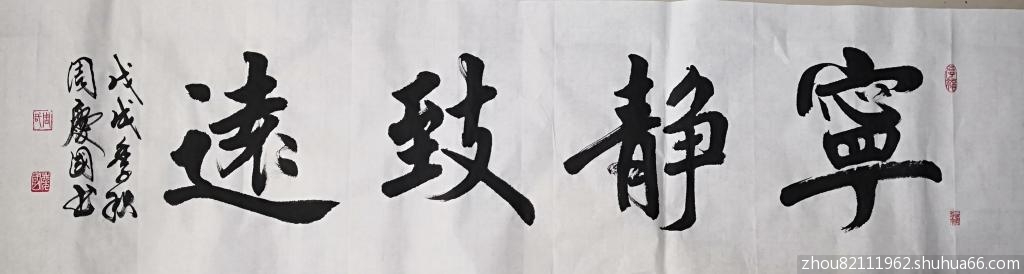 寧静致遠
戊戌季秋
周慶國书
zhou82111962.shuhua66.com